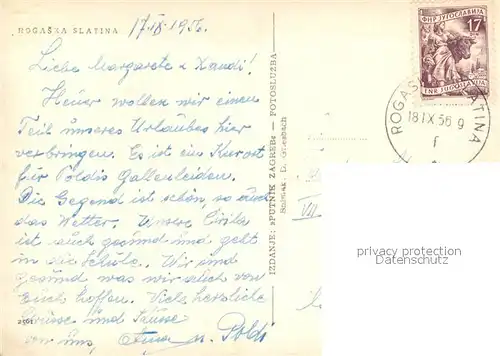 ROGAŠKA SLATINA
17.IX.1956.
Liebe Margarete u. Xandi!
Heuer wollen wir einen
Teil unseres Urlaubes hier
verbringen. Es ist ein Kurort
für Poldis Gallenleiden.
Die Gegend ist schön, so auch
das Wetter. Unsere
ist auch gesund und geht
in die Schule. Wir sind
gesund was wir auch von
Euch hoffen. Viele herzliche
Grüsse und Küsse
von uns, u. Poldi
2501
IZDANJE: »PUTNIK ZAGREB« — FOTOSLUŽBA
Snimak: D. Griesbach
ФНР ЈУГОСЛАВИЈА
17
FNR JUGOSLAVIJA
ROGAŠKA SLATINA
18 IX 56 9
f
VII
privacy protection
Datenschutz